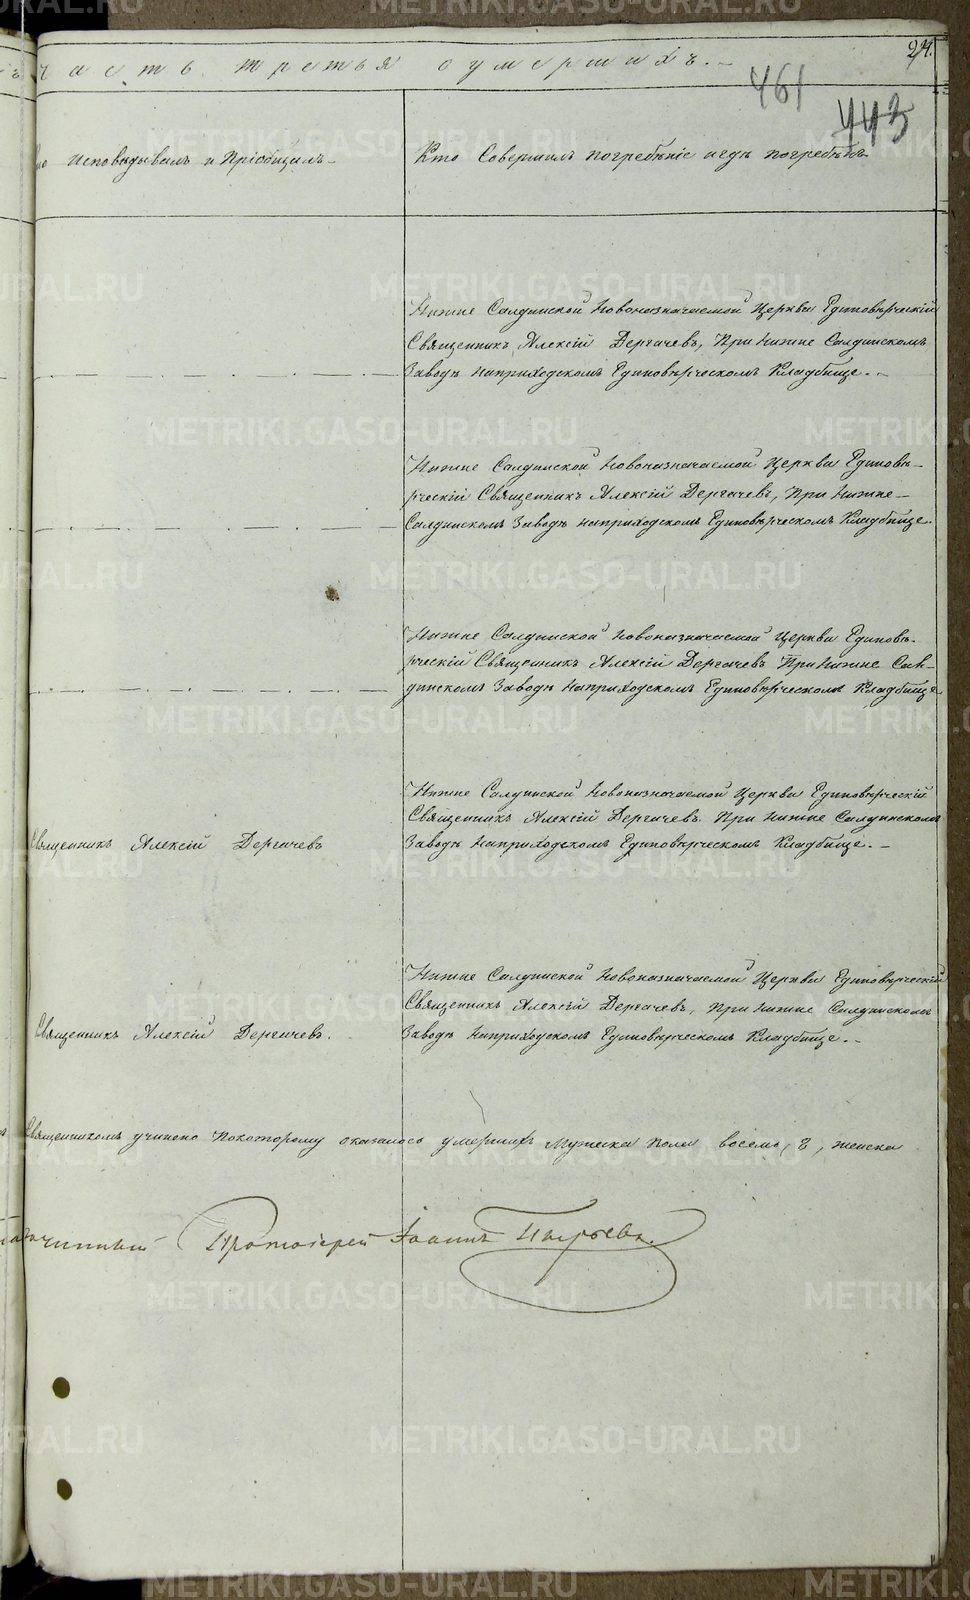 24.
часть третья о умершихъ.
461
443
Исповѣдывалъ и Пріобщилъ
Кто Совершилъ погребѣніе и гдѣ погребѣнъ
Нижне Салдинской Новоназначаемой Церкви Единовѣрческій
Священникъ Алексій Дергачевъ, При Нижне Салдинскомъ
Заводѣ наприходскомъ Единовѣрческомъ Кладбище.
Нижне Салдинской Новоназначаемой Церкви Единовѣ-
рческій Священникъ Алексій Дергачевъ, При Нижне-
Салдинскомъ Заводѣ наприходскомъ Единовѣрческомъ Кладбище.
Нижне Салдинской Новоназначаемой Церкви Единовѣ-
рческій Священникъ Алексій Дергачевъ При Нижне Сал-
динскомъ Заводѣ наприходскомъ Единовѣрческомъ Кладбище
Нижне Салдинской Новоназначаемой Церкви Единовѣрческій
Священникъ Алексій Дергачевъ При Нижне Салдинскомъ
Священникъ Алексій Дергачевъ
Заводѣ наприходскомъ Единовѣрческомъ Кладбище.
Нижне Салдинской Новоназначаемой Церкви Единовѣрческій
Священникъ Алексій Дергачевъ, При Нижне Салдинскомъ
Священникъ Алексій Дергачевъ.
Заводѣ наприходскомъ Единовѣрческомъ Кладбище.
Священникомъ учинено Покоторому оказалось умершихъ Мужеска Пола восемь, 8, женска
Протоіерей Іоаннъ
METRIKI.GASO-URAL.RU